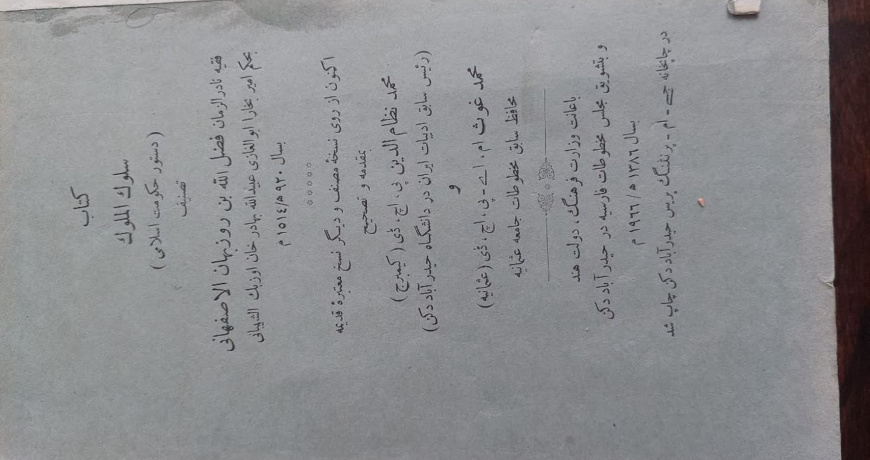 کتاب
سلوك الملوك
(دستور حکومت اسلامی)
تصنیف
فقیه نادر الزمان فضل الله بن روزبهان الاصفهانی
بحکم امیر بخارا ابو الغازی عبیدالله بهادر خان اوزبك الشیبانی
بسال ۹۲۰ھ/۱۵۱٤ م
اکنون از روی نسخهٔ مصنف و دیگر نسخ معتبرهٔ قدیمه
بمقدمه و تصحیح
محمد نظام الدین پی، اچ، ڈی (کیمبرج)
(رئیس سابق ادبیات ایران در دانشگاه حیدرآباد دکن)
و
محمد غوث ام، اے - پی، اچ، ڈی (عثمانیه)
محافظ سابق مخطوطات جامعه عثمانیه
باعانت وزارت فرهنگ، دولت هند
و بتشویق مجلس مخطوطات فارسیه در حیدرآباد دکن
بسال ۱۳۸٦ ھ/۱۹٦٦ م
در چاپخانه جے - ام - پرنٹنگ پریس حیدرآباد دکن چاپ شد